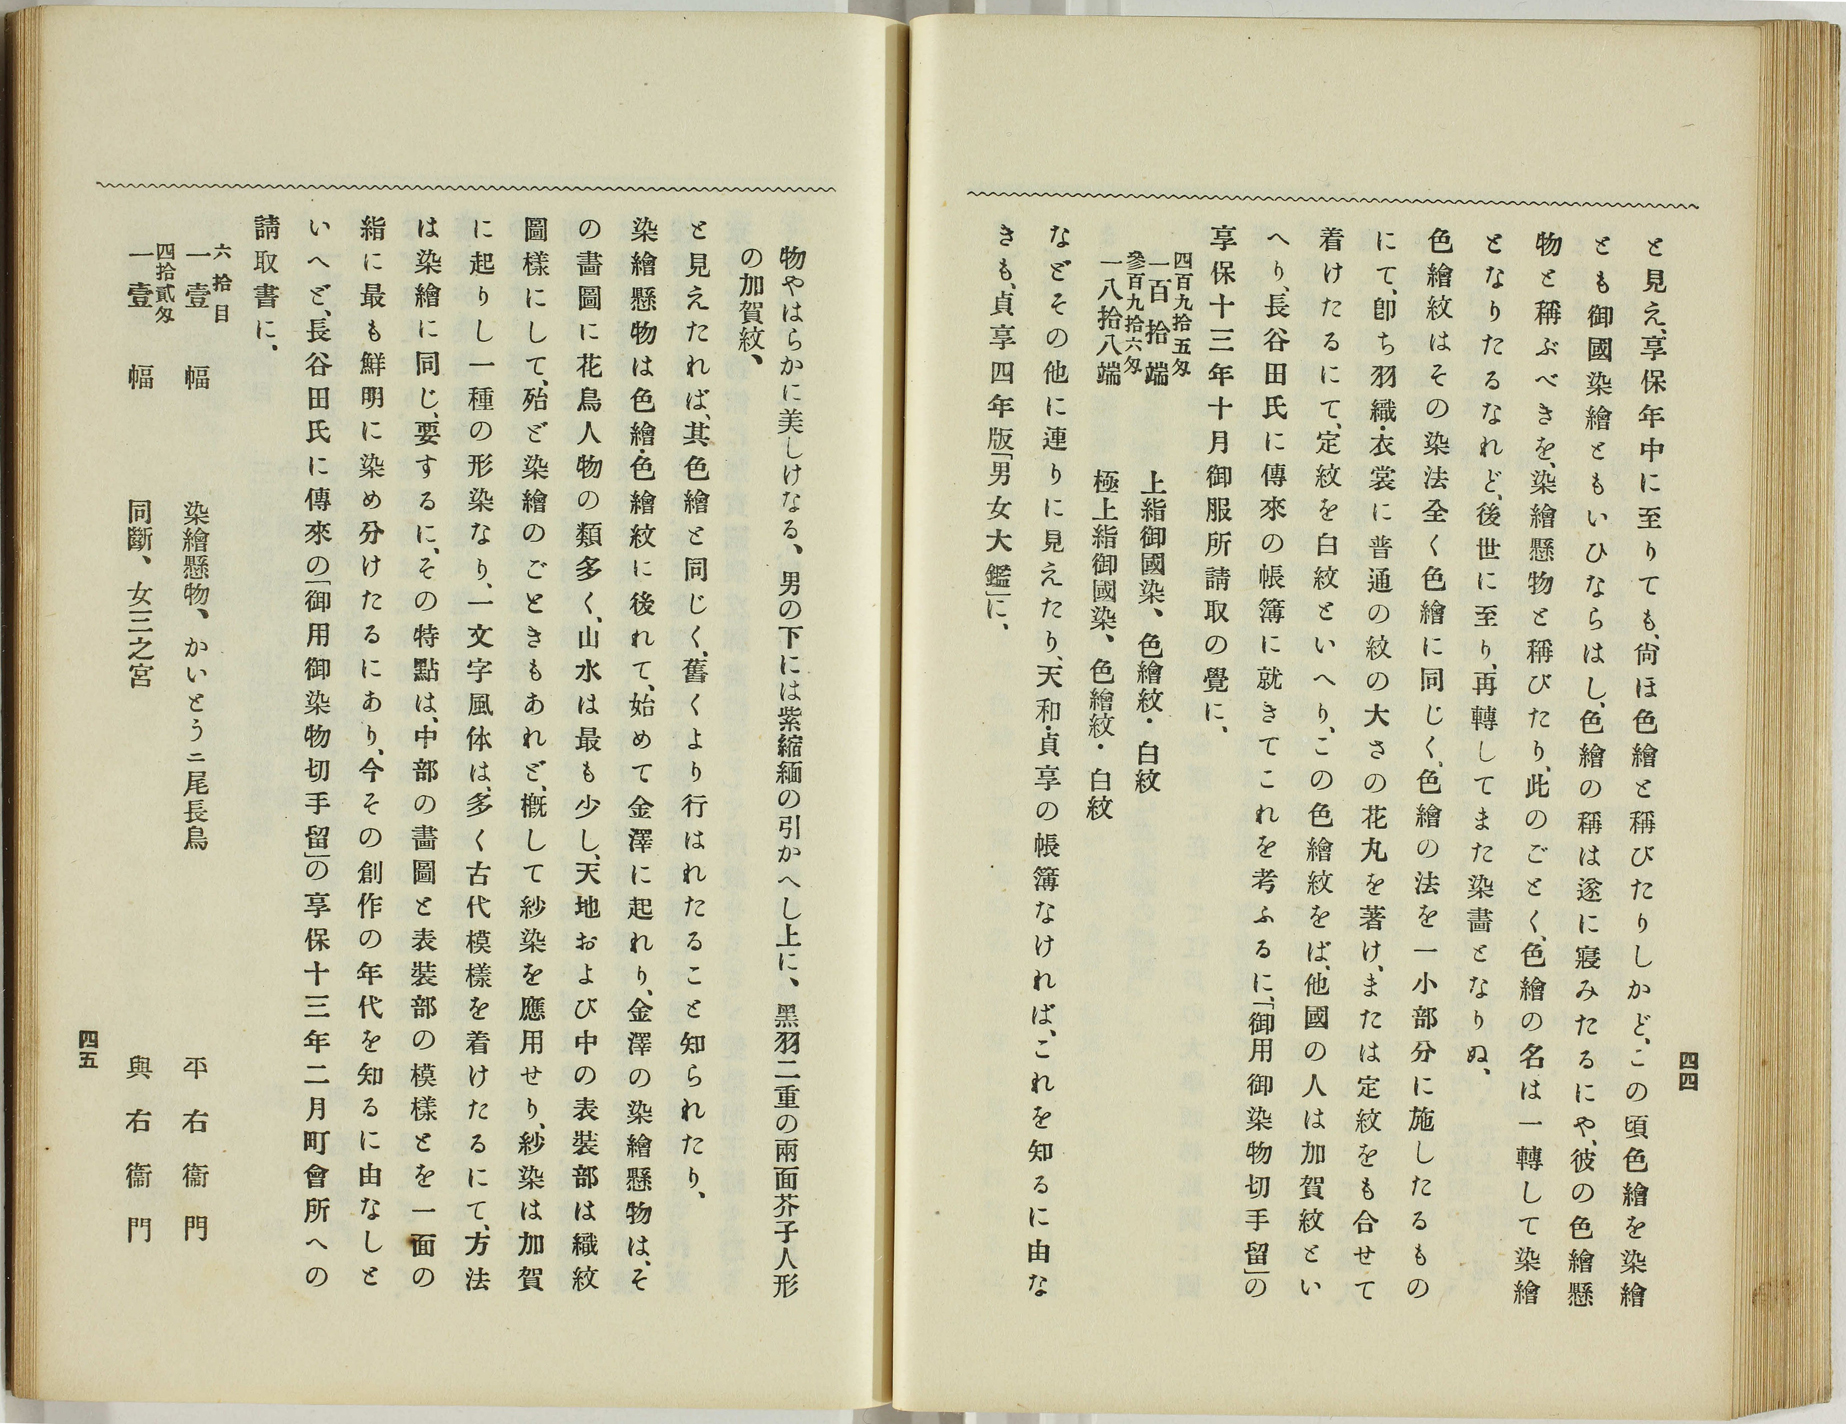 四四
と見え、享保年中に至りても、尙ほ色繪と稱びたりしかど、この頃色繪を染繪
とも御國染繪ともいひならはし、色繪の稱は遂に寢みたるにや、彼の色繪懸
物と稱ぶべきを、染繪懸物と稱びたり、此のごとく、色繪の名は一轉して染繪
となりたるなれど、後世に至り、再轉してまた染畵となりぬ、
色繪紋はその染法全く色繪に同じく、色繪の法を一小部分に施したるもの
にて、卽ち羽織・衣裳に普通の紋の大さの花丸を著け、または定紋をも合せて
着けたるにて、定紋を白紋といへり、この色繪紋をば、他國の人は加賀紋とい
へり、長谷田氏に傳來の帳簿に就きてこれを考ふるに、「御用御染物切手留」の
享保十三年十月御服所請取の覺に、
四百九拾五匁
一百拾端　上𥿻御國染、色繪紋・白紋
參百九拾六匁
一八拾八端　極上𥿻御國染、色繪紋・白紋
などその他に連りに見えたり、天和・貞享の帳簿なければ、これを知るに由な
きも、貞享四年版「男女大鑑」に、
物やはらかに美しけなる、男の下には紫縮緬の引かへし上に、黑羽二重の兩面芥子人形
の加賀紋、
と見えたれば、其色繪と同じく、舊くより行はれたること知られたり、
染繪懸物は色繪・色繪紋に後れて、始めて金澤に起れり、金澤の染繪懸物は、そ
の畵圖に花鳥人物の類多く、山水は最も少し、天地および中の表裝部は織紋
圖樣にして、殆ど染繪のごときもあれど、槪して紗染を應用せり、紗染は加賀
に起りし一種の形染なり、一文字風体は、多く古代模樣を着けたるにて、方法
は染繪に同じ、要するに、その特點は、中部の畵圖と表裝部の模樣とを一面の
𥿻に最も鮮明に染め分けたるにあり、今その創作の年代を知るに由なしと
いへど、長谷田氏に傳來の「御用御染物切手留」の享保十三年二月町會所への
請取書に、
六拾目
一壹幅　染繪懸物、かいとうニ尾長鳥　平右衞門
四拾貳匁
一壹幅　同斷、女三之宮　與右衞門
四五